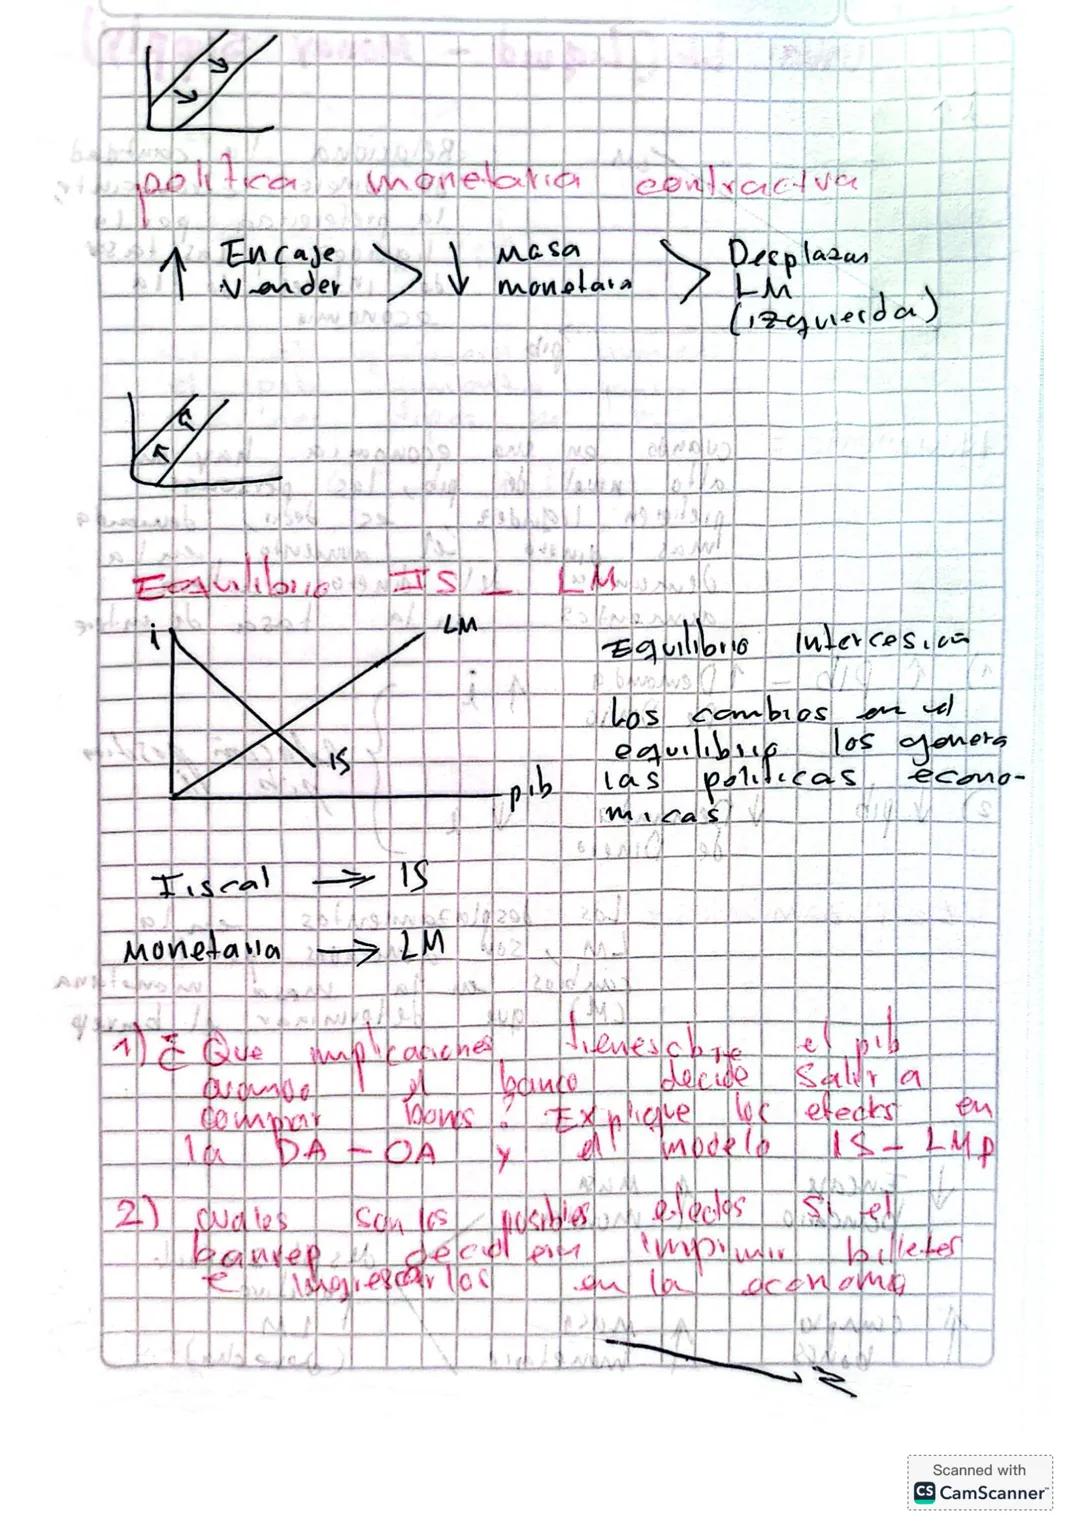 política monetaria contractva
↑ Encaje > ↓ masa > Desplazar
Vender monetara LM
(izquierda)
Equilibrio IS _ LM
i LM
IS
pib
Equilibrio Intercesión
Los cambios en el
equilibrio los genera
las politicas econo-
micas
Fiscal → IS
Monetaria → LM
1) ¿ Que implicaciones tiene sobre el pib
cuando el banco decide salir a
comprar bonos? Explique los efectos en
la DA - OA y el modelo IS - LM
2) cuales son los posibles efectos si el
banrep decid imprimir billetes
e ingresarlos en la economa
Scanned with
CS CamScanner